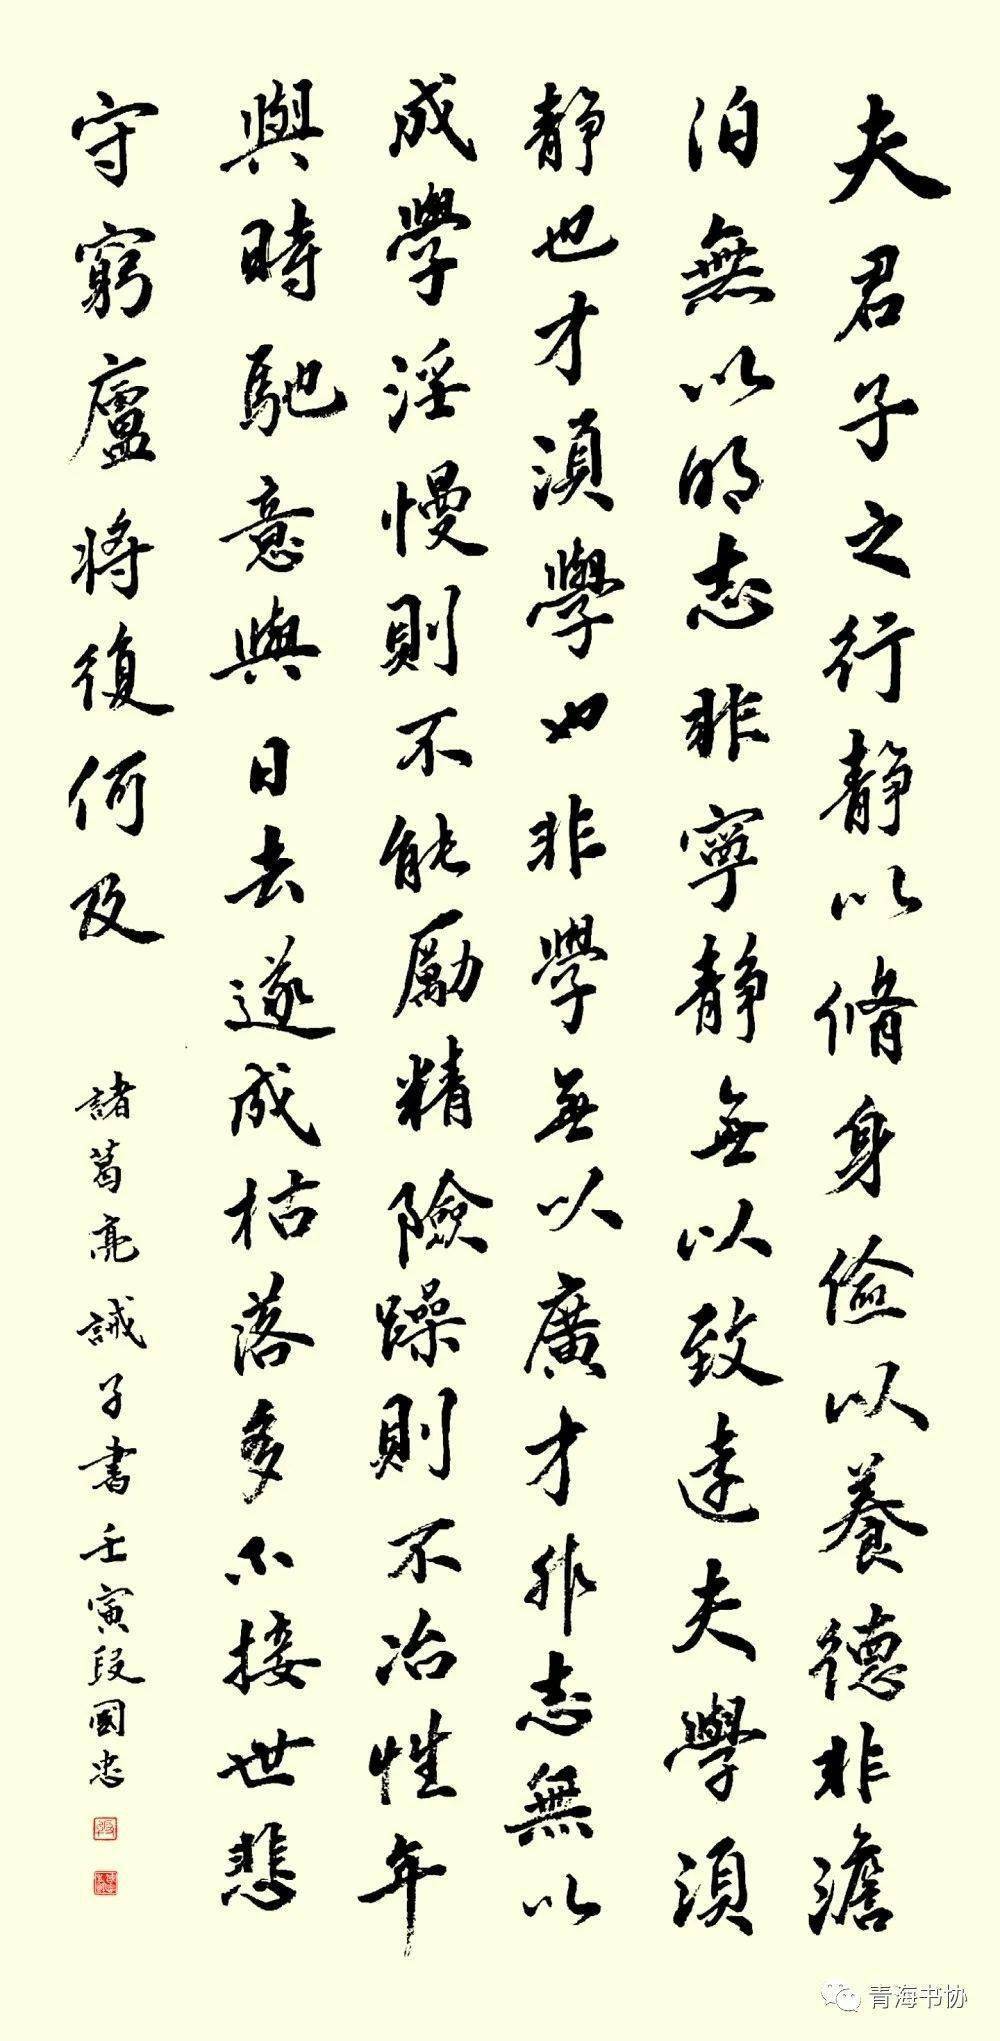 夫君子之行静以脩身儉以養德非澹
泊無以明志非寧静無以致遠夫學須
静也才須學也非學無以廣才非志無以
成學淫慢則不能勵精險躁則不冶性年
與時馳意與日去遂成枯落多不接世悲
守窮廬將復何及
諸葛亮誡子書壬寅段國忠
青海书协